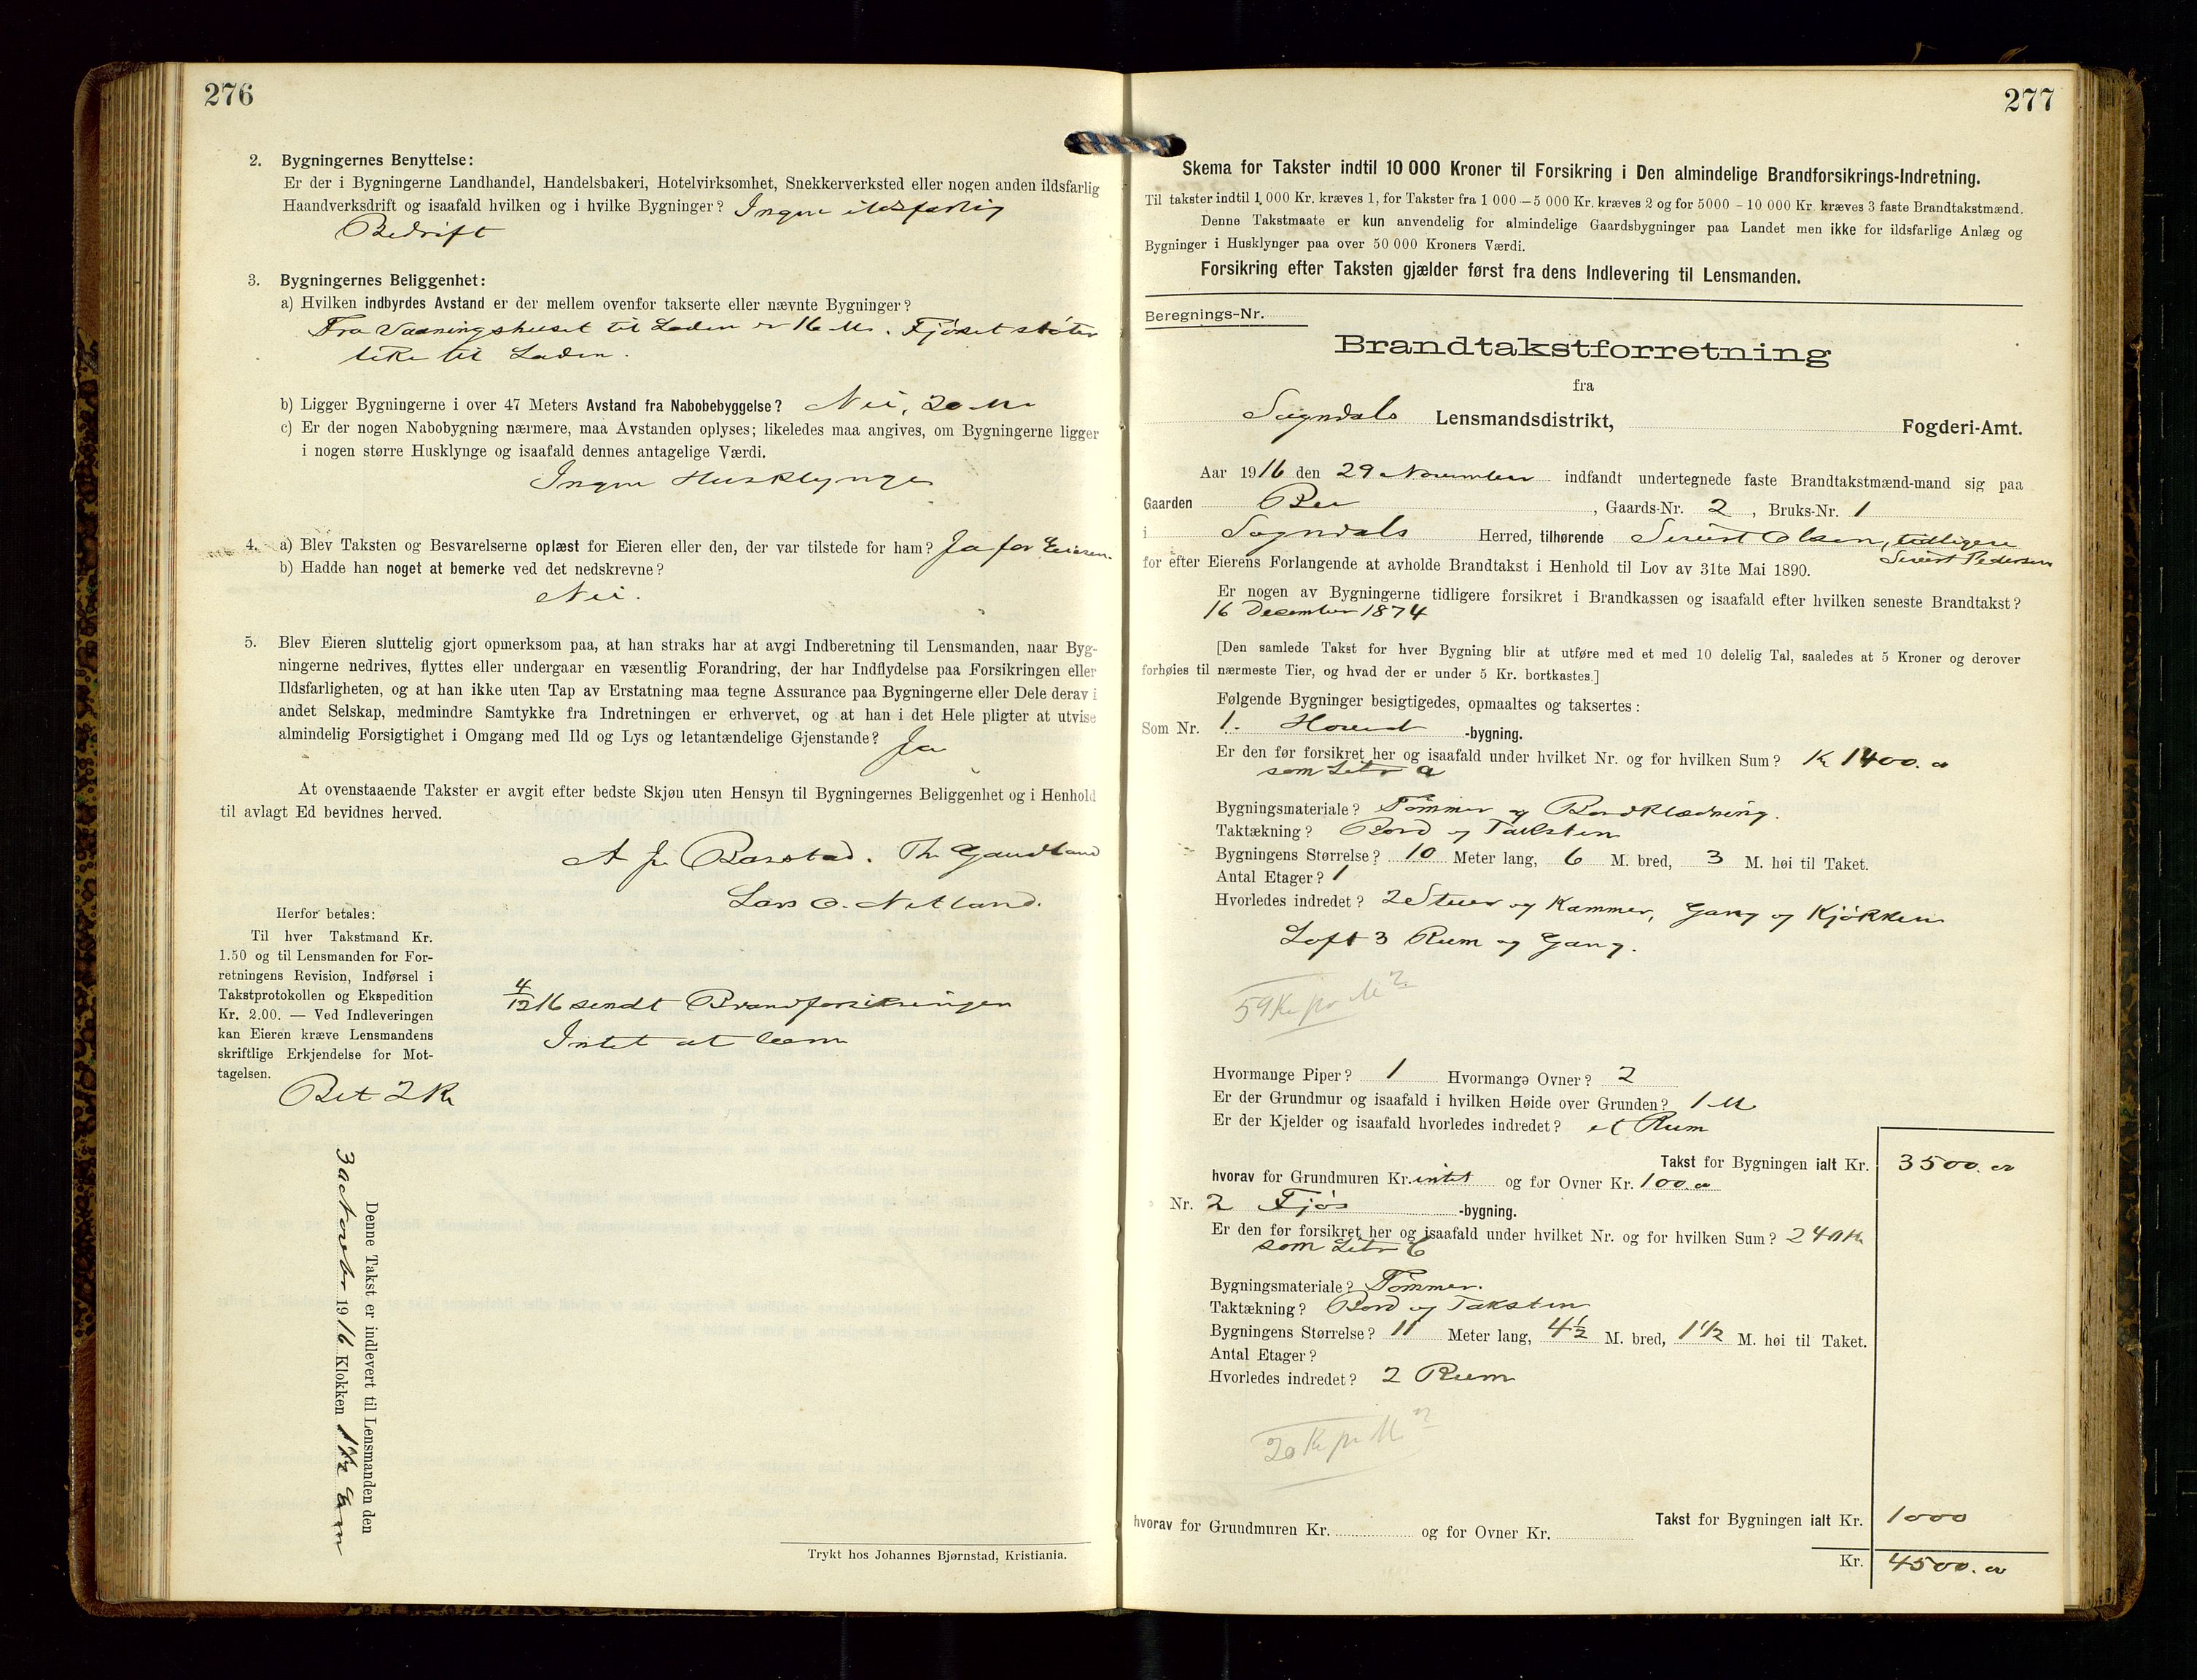 276
2. Bygningernes Benyttelse:
Er der i Bygningerne Landhandel, Handelsbakeri, Hotelvirksomhet, Snekkerverksted eller nogen anden ildsfarlig
Haandverksdrift og isaafald hvilken og i hvilke Bygninger? Ingen ildsfarlig
Bedrift
3. Bygningernes Beliggenhet:
a) Hvilken indbyrdes Avstand er der mellem ovenfor takserte eller nævnte Bygninger?
Fra Vaaningshuset til Laden er 16 M. Fjöset stöter
like til Laden.
b) Ligger Bygningerne i over 47 Meters Avstand fra Nabobebyggelse? Nei, 20 M
c) Er der nogen Nabobygning nærmere, maa Avstanden oplyses; likeledes maa angives, om Bygningerne ligger
i nogen større Husklynge og isaafald dennes antagelige Værdi.
Ingen Husklynge
4. a) Blev Taksten og Besvarelserne oplæst for Eieren eller den, der var tilstede for ham? Ja for Eieren.
b) Hadde han noget at bemerke ved det nedskrevne?
Nei.
5. Blev Eieren sluttelig gjort opmerksom paa, at han straks har at avgi Indberetning til Lensmanden, naar Byg-
ningerne nedrives, flyttes eller undergaar en væsentlig Forandring, der har Indflydelse paa Forsikringen eller
Ildsfarligheten, og at han ikke uten Tap av Erstatning maa tegne Assurance paa Bygningerne eller Dele derav i
andet Selskap, medmindre Samtykke fra Indretningen er erhvervet, og at han i det Hele pligter at utvise
almindelig Forsigtighet i Omgang med Ild og Lys og letantændelige Gjenstande? Ja
At ovenstaaende Takster er avgit efter bedste Skjøn uten Hensyn til Bygningernes Beliggenhet og i Henhold
til avlagt Ed bevidnes herved.
Th. Gaudland
Lars O. Netland.
Herfor betales:
Til hver Takstmand Kr.
1.50 og til Lensmanden for For-
retningens Revision, Indførsel i
Takstprotokollen og Ekspedition
Kr. 2.00. — Ved Indleveringen
kan Eieren kræve Lensmandens
skriftlige Erkjendelse for Mot-
tagelsen.
Bet 2 Kr
4/12 16 sendt Brandforsikringen
Intet at bem
Denne Takst er indlevert til Lensmanden den
1916 Klokken 1 1/2
Trykt hos Johannes Bjørnstad, Kristiania.
277
Skema for Takster indtil 10 000 Kroner til Forsikring i Den almindelige Brandforsikrings-Indretning.
Til takster indtil 1,000 Kr. kræves 1, for Takster fra 1 000 — 5 000 Kr. kræves 2 og for 5000 - 10 000 Kr. kræves 3 faste Brandtakstmænd.
Denne Takstmaate er kun anvendelig for almindelige Gaardsbygninger paa Landet men ikke for ildsfarlige Anlæg og
Bygninger i Husklynger paa over 50 000 Kroners Værdi.
Forsikring efter Taksten gjælder først fra dens Indlevering til Lensmanden.
Beregnings-Nr.
Brandtakstforretning
fra
Sogndals Lensmandsdistrikt, Fogderi-Amt.
Aar 1916 den 29 November indfandt undertegnede faste Brandtakstmænd-mand sig paa
Gaarden , Gaards-Nr. 2 , Bruks-Nr. 1
i Sogndals Herred, tilhørende Sivert Olsen, tidligere
Sivert Pedersen
for efter Eierens Forlangende at avholde Brandtakst i Henhold til Lov av 31te Mai 1890.
Er nogen av Bygningerne tidligere forsikret i Brandkassen og isaafald efter hvilken seneste Brandtakst?
16 Desember 1874
[Den samlede Takst for hver Bygning blir at utføre med et med 10 delelig Tal, saaledes at 5 Kroner og derover
forhøies til nærmeste Tier, og hvad der er under 5 Kr. bortkastes.]
Følgende Bygninger besigtigedes, opmaaltes og taksertes:
Som Nr. 1. Hoved -bygning.
Er den før forsikret her og isaafald under hvilket Nr. og for hvilken Sum? Kr 1400.
som Litr a
Bygningsmateriale? Tömmer og Bordklædning.
Taktækning? Bord og Taksten
Bygningens Størrelse? 10 Meter lang, 6 M. bred, 3 M. høi til Taket.
Antal Etager? 1
Hvorledes indredet? 2 Stuer og Kammer, Gang og Kjökken
Loft 3 Rum og Gang.
59 Kr pr M2
Hvormange Piper? 1 Hvormange Ovner? 2
Er der Grundmur og isaafald i hvilken Høide over Grunden? 1 M
Er der Kjelder og isaafald hvorledes indredet? et Rum
Takst for Bygningen ialt Kr. 3500.
hvorav for Grundmuren Kr. intet og for Ovner Kr. 100.
Nr. 2 Fjös -bygning.
Er den før forsikret her og isaafald under hvilket Nr. og for hvilken Sum? 240 Kr
som Litr
Bygningsmateriale? Tömmer.
Taktækning? Bord og Taksten
Bygningens Størrelse? 11 Meter lang, 4 1/2 M. bred, 1 1/2 M. høi til Taket.
Antal Etager?
Hvorledes indredet? 2 Rum
20 Kr pr M2
Takst for Bygningen ialt Kr. 1000
hvorav for Grundmuren Kr. og for Ovner Kr.
Kr. 4500.